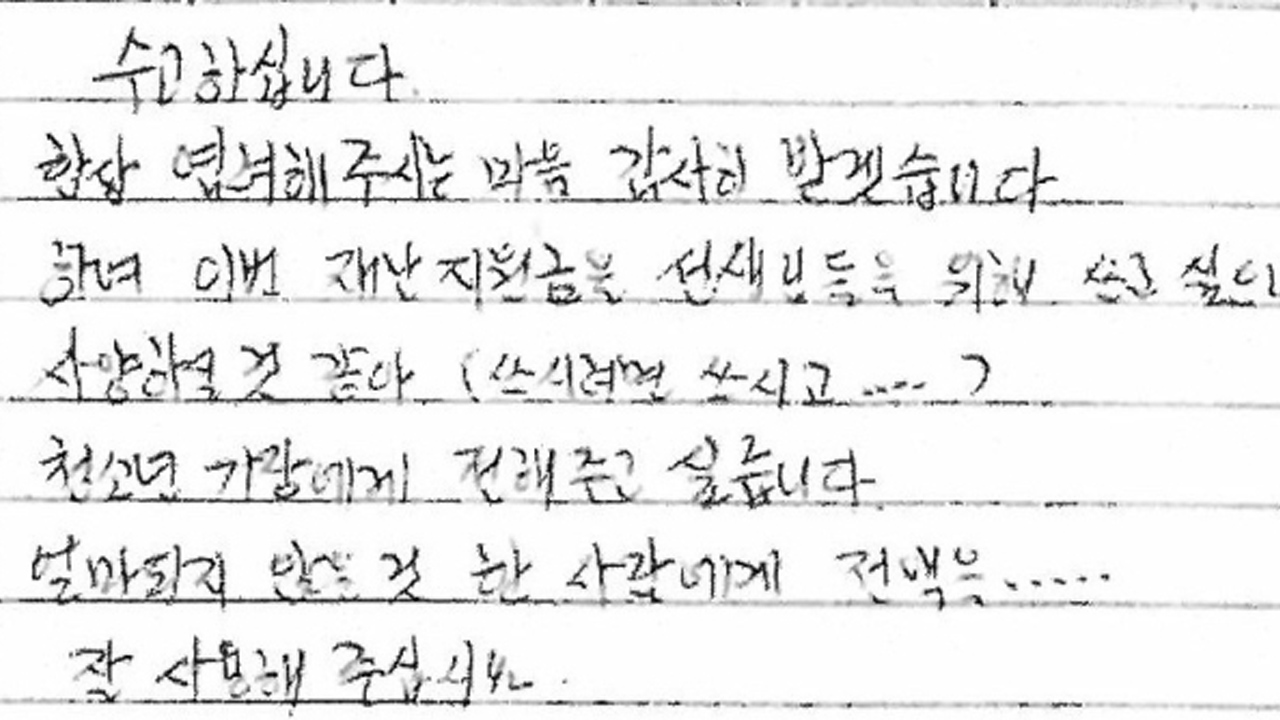 수고하십니다.
항상 염녀해 주시는 마음 감사히 받겠습니다
하녀 이번 재난지원금을 선생님들을 위해 쓰고 싶으나
사양하실 것 같아 (쓰시려면 쓰시고 ....)
청소년 가장에게 전해주고 싶습니다.
얼마되지 않는 것 한 사람에게 전액을.....
잘 사용해 주십시요.